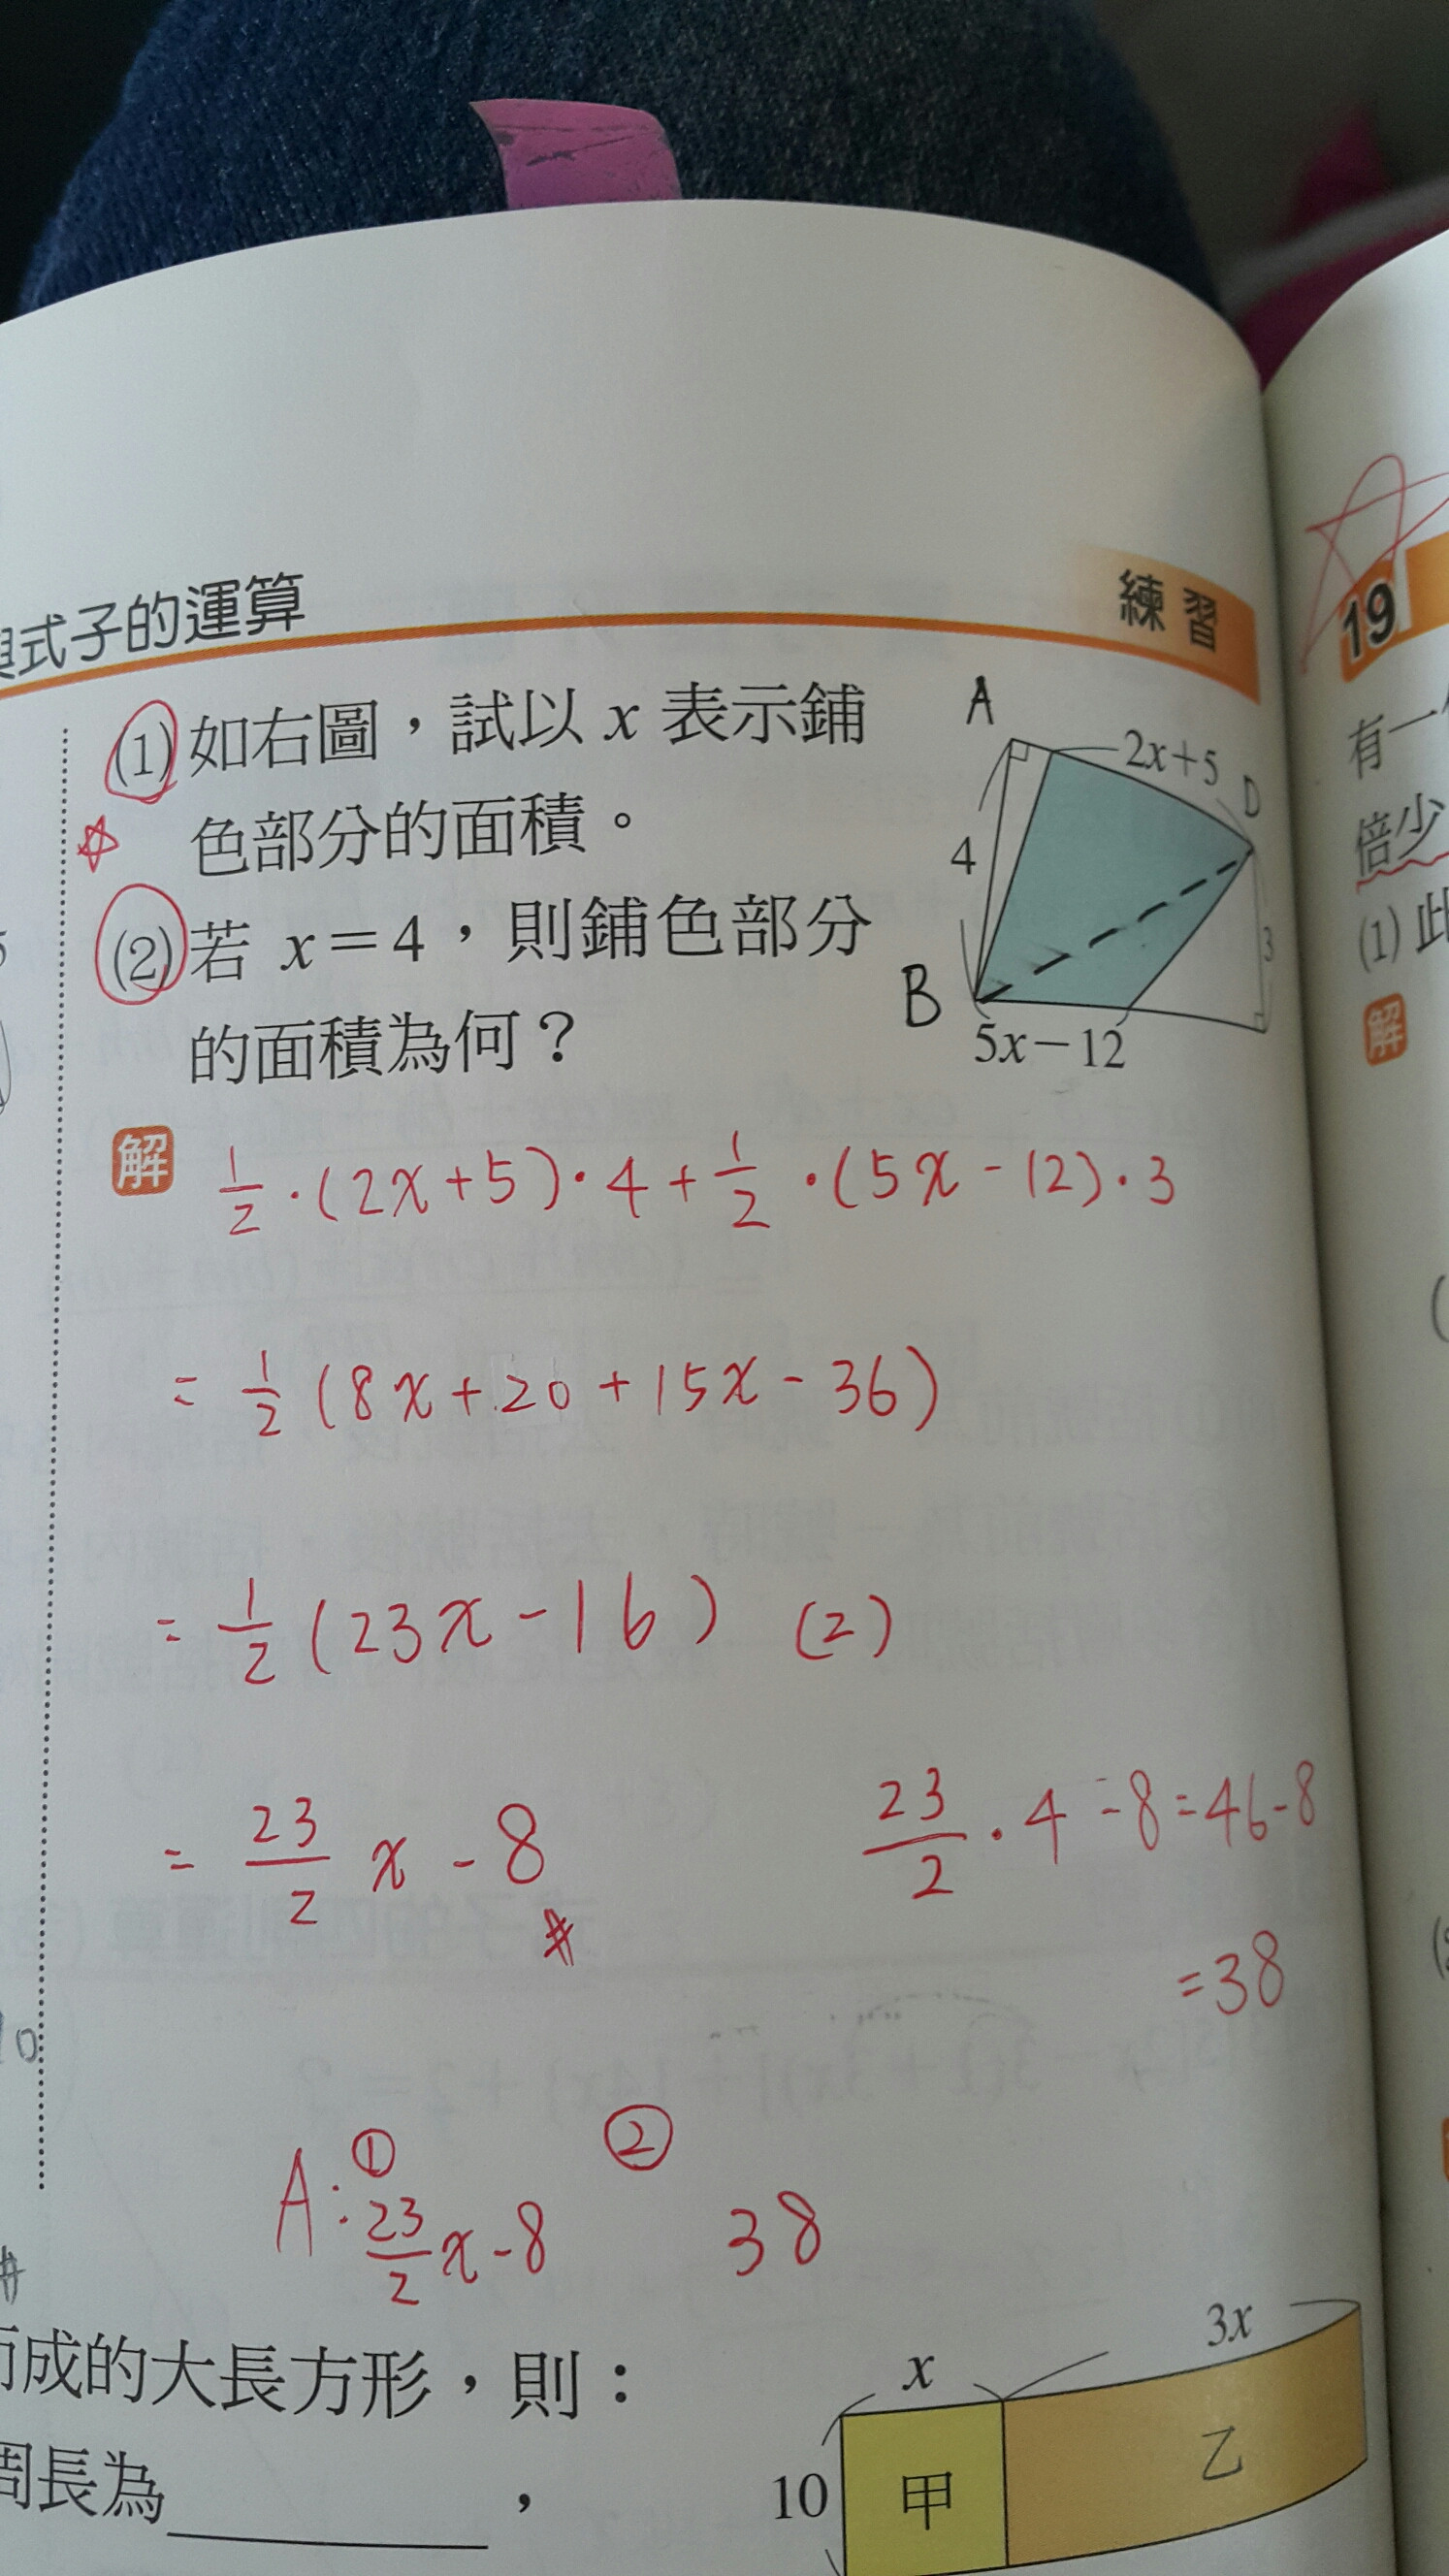 與式子的運算
練習
(1) 如右圖，試以 x 表示鋪
色部分的面積。
(2) 若 x=4，則鋪色部分
的面積為何？
A
2x+5
D
4
3
B
5x−12
解
1/2·(2x+5)·4+1/2·(5x-12)·3
= 1/2 (8x+20+15x-36)
= 1/2 (23x-16)
= 23/2 x - 8 #
(2)
23/2·4-8=46-8
=38
A: ① 23/2 x-8 ② 38
成的大長方形，則：
周長為 ，
x
3x
10
甲
乙
19
有一
倍少
(1) 此
解